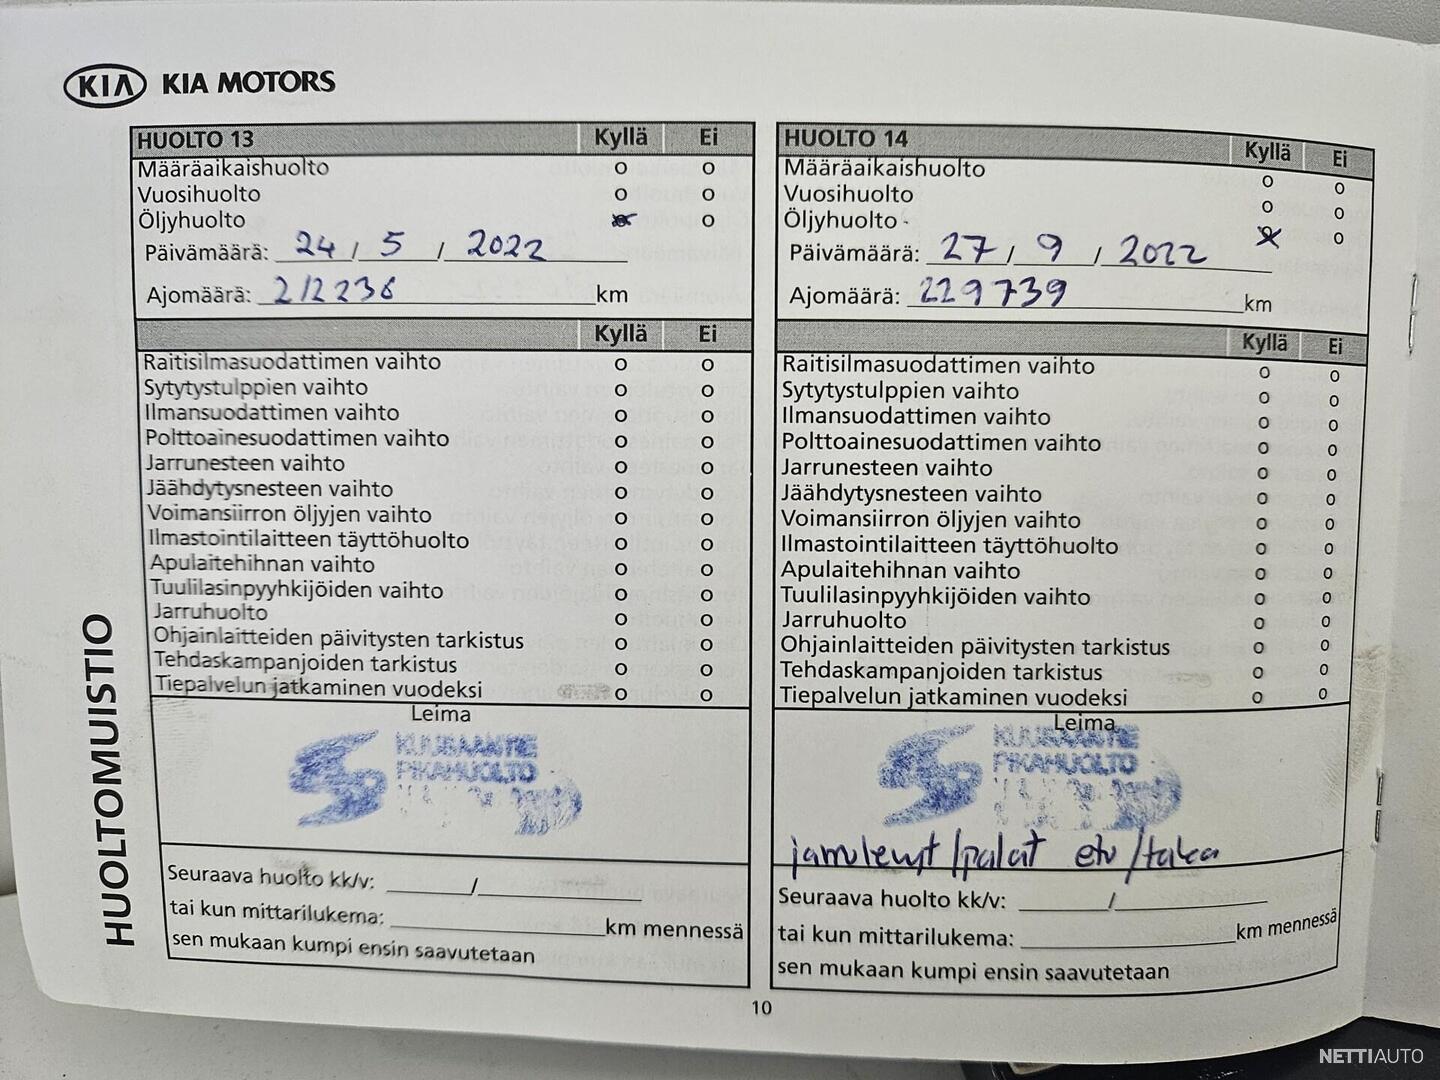 KIA KIA MOTORS
HUOLTOMUISTIO
HUOLTO 13 Kyllä Ei
Määräaikaishuolto o o
Vuosihuolto o o
Öljyhuolto o
Päivämäärä: 24 / 5 / 2022
Ajomäärä: 212236 km
Kyllä Ei
Raitisilmasuodattimen vaihto o o
Sytytystulppien vaihto o o
Ilmansuodattimen vaihto o o
Polttoainesuodattimen vaihto o o
Jarrunesteen vaihto o o
Jäähdytysnesteen vaihto o o
Voimansiirron öljyjen vaihto o o
Ilmastointilaitteen täyttöhuolto o o
Apulaitehihnan vaihto o o
Tuulilasinpyyhkijöiden vaihto o o
Jarruhuolto o o
Ohjainlaitteiden päivitysten tarkistus o o
Tehdaskampanjoiden tarkistus o o
Tiepalvelun jatkaminen vuodeksi o o
Leima
KUUSAANTIE
PIKAHUOLTO
Seuraava huolto kk/v: /
tai kun mittarilukema: km mennessä
sen mukaan kumpi ensin saavutetaan
HUOLTO 14 Kyllä Ei
Määräaikaishuolto o o
Vuosihuolto o o
Öljyhuolto o o
Päivämäärä: 27 / 9 / 2022
Ajomäärä: 229739 km
Kyllä Ei
Raitisilmasuodattimen vaihto o o
Sytytystulppien vaihto o o
Ilmansuodattimen vaihto o o
Polttoainesuodattimen vaihto o o
Jarrunesteen vaihto o o
Jäähdytysnesteen vaihto o o
Voimansiirron öljyjen vaihto o o
Ilmastointilaitteen täyttöhuolto o o
Apulaitehihnan vaihto o o
Tuulilasinpyyhkijöiden vaihto o o
Jarruhuolto o o
Ohjainlaitteiden päivitysten tarkistus o o
Tehdaskampanjoiden tarkistus o o
Tiepalvelun jatkaminen vuodeksi o o
Leima
KUUSAANTIE
PIKAHUOLTO
jarrulevyt/palat etu/taka
Seuraava huolto kk/v: /
tai kun mittarilukema: km mennessä
sen mukaan kumpi ensin saavutetaan
10
NETTIAUTO